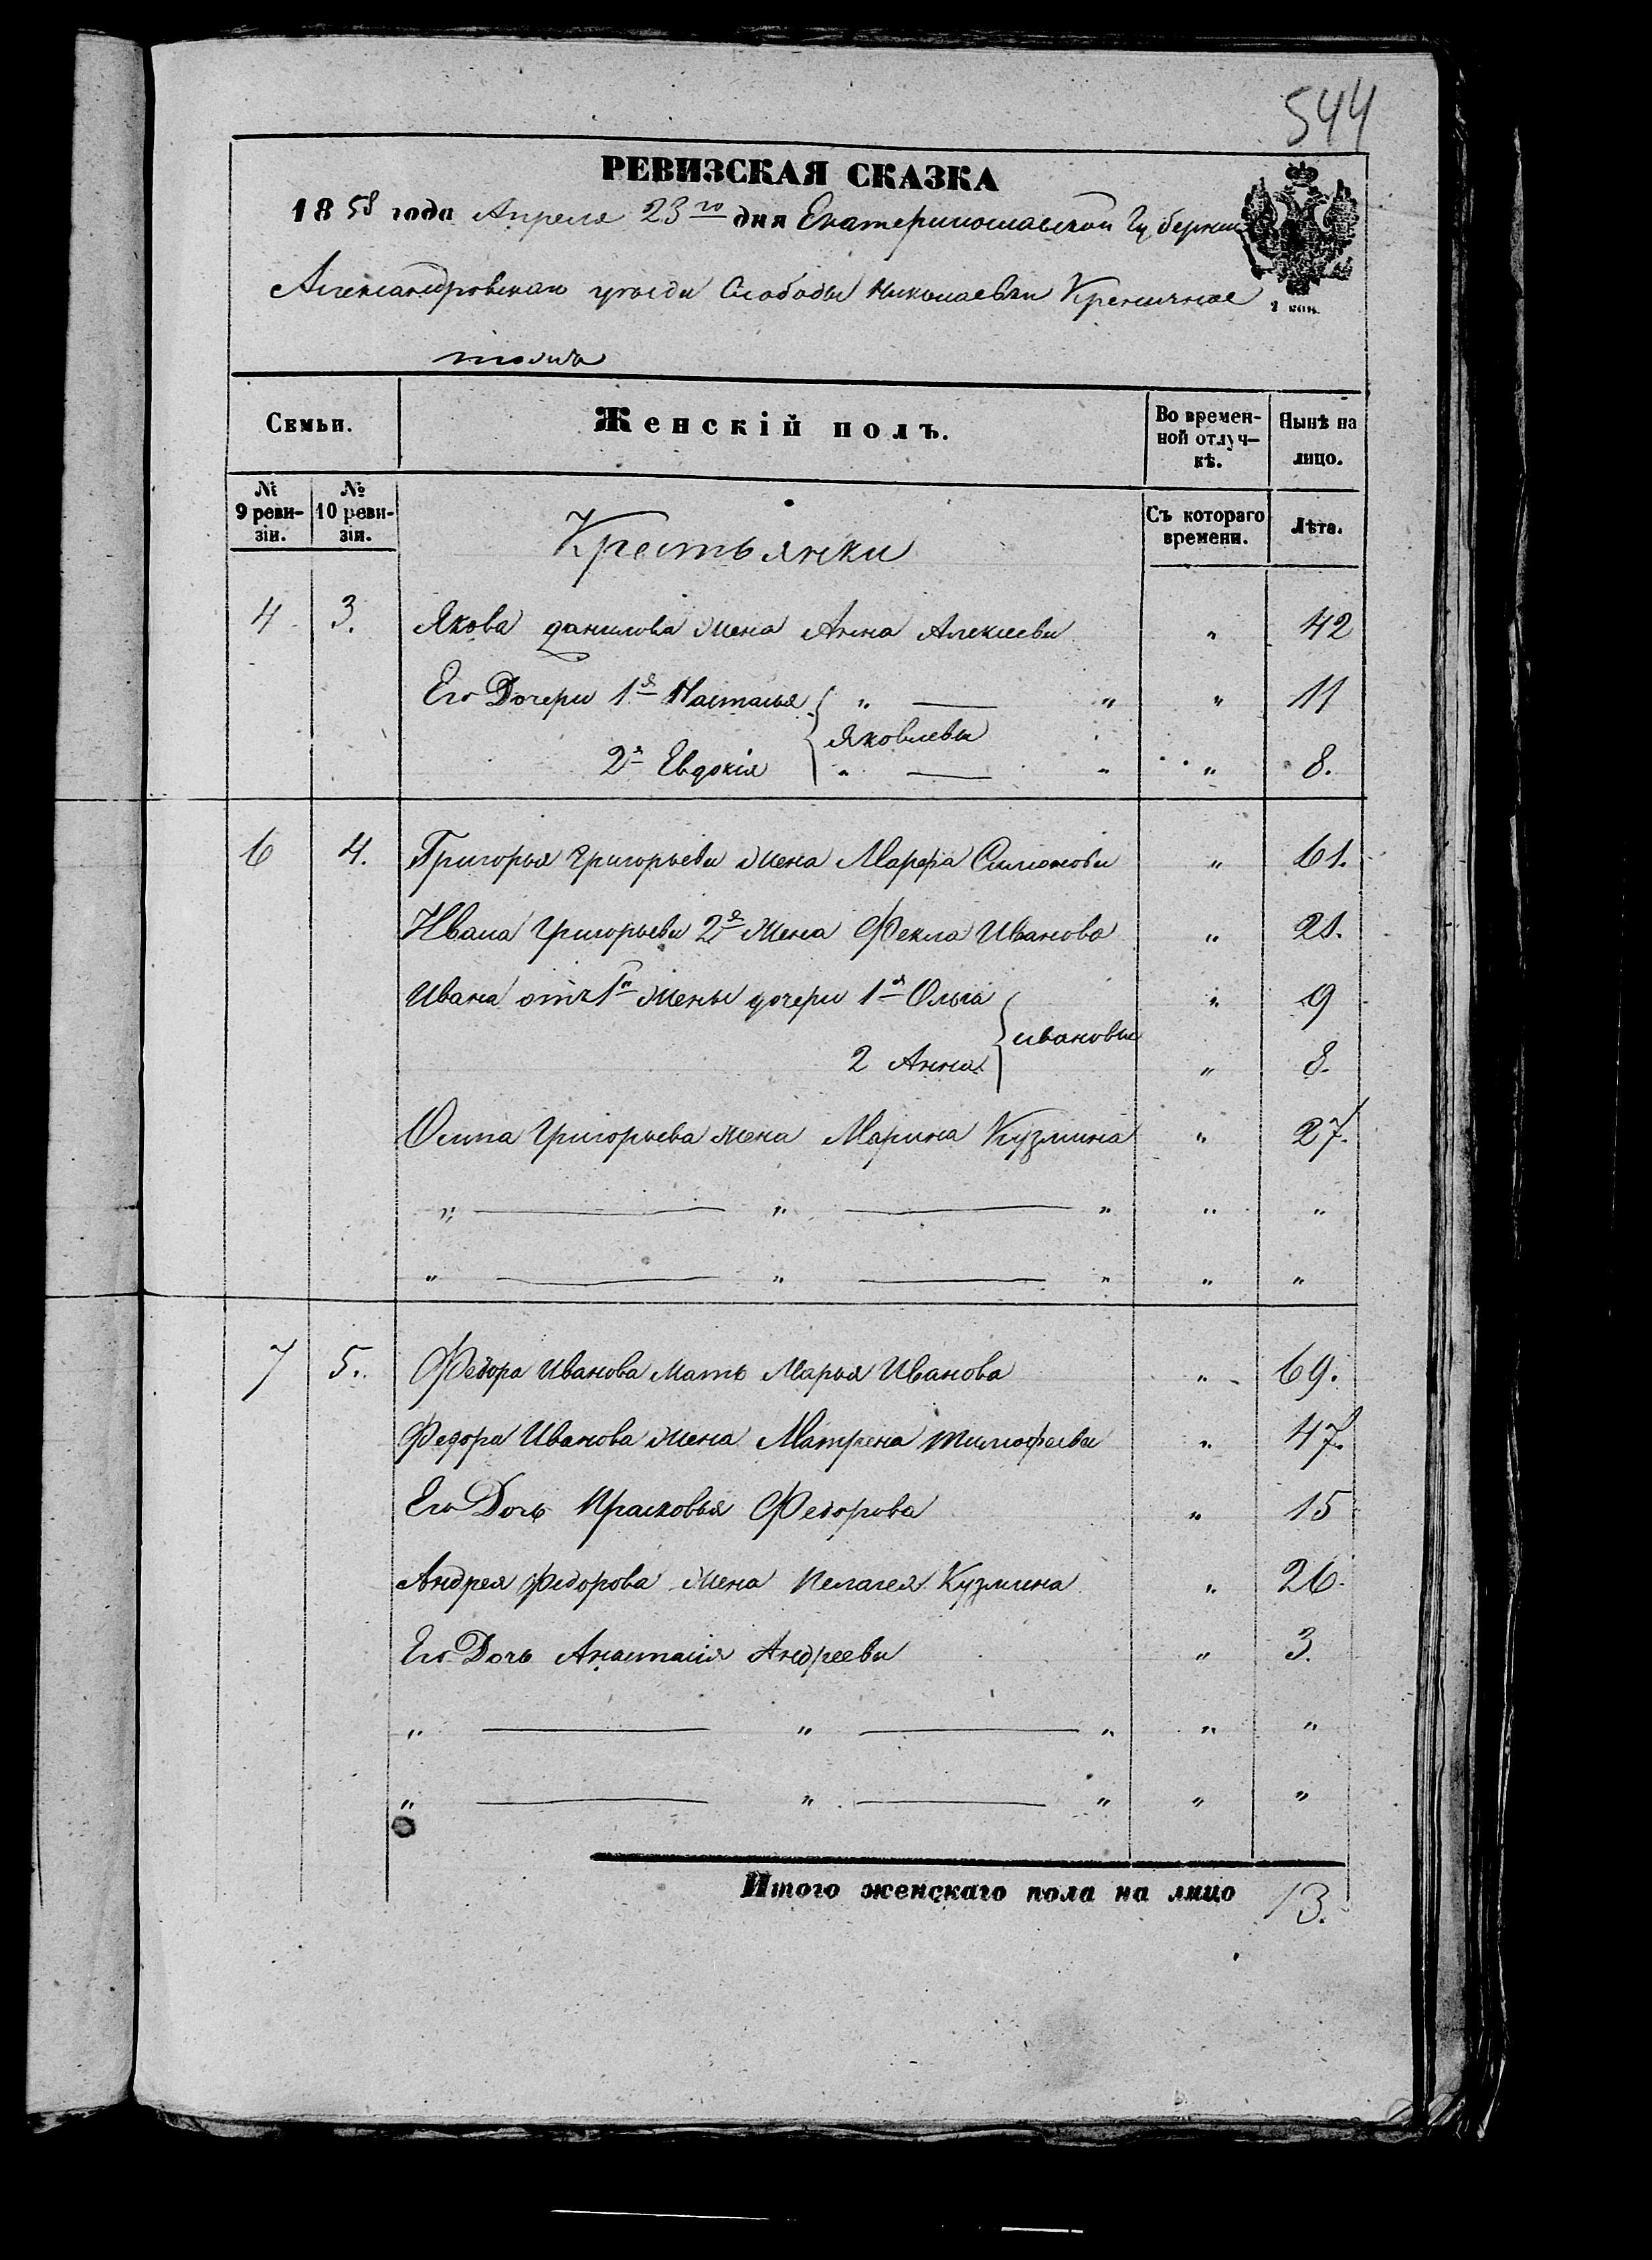 544
РЕВИЗСКАЯ СКАЗКА
1858 года Апреля 23го дня Екатеринославской Губернии
Александровскаго уезда Слободы Николаевки Креничное
тожъ
Семьи.
Женскій полъ.
Во времен-
ной отлуч-
кѣ.
Нынѣ на
лицо.
№
9 реви-
зіи.
№
10 реви-
зіи.
Съ котораго
времени.
Лѣта.
Крестьянки
4 3. Якова данилова жена Анна Алексеева " 42
Его Дочери 1я Настасья " — " " 11
Яковлевы
2я Евдокія " — " " 8.
6 4. Григорья Григорьева жена Марфа Симонова " 61.
Ивана Григорьева 2я жена Фекла Иванова " 21.
Ивана отъ 1й жены дочери 1я Ольга " 9
ивановы
2 Анна " 8.
Осипа Григорьева жена Марина Кузмина " 27.
" — " — " " "
" — " — " " "
7 5. Федора Иванова мать Марья Иванова " 69.
Федора Иванова жена Матрена тимофеева " 47.
Его Дочь Прасковья Федорова " 15
Андрея Федорова жена Пелагея Кузмина " 26.
Его Дочь Анастасія Андреева " 3.
" — " — " " "
" — " — " " "
Итого женскаго пола на лицо 13.
1 коп.